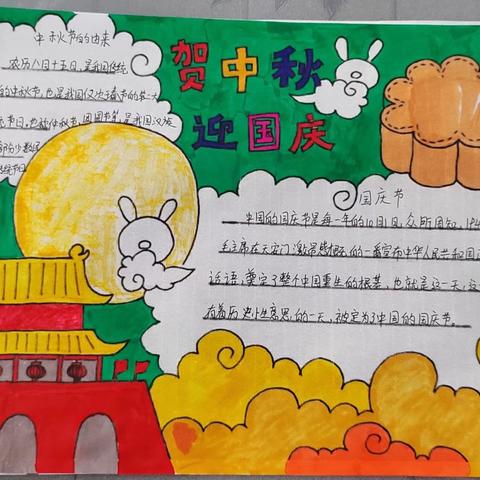 贺中秋
迎国庆
中秋节的由来
农历八月十五日,是我国传统
的中秋节,也是我国仅次于春节的第二大
节日,也称仲秋节、团圆节,是我国汉族
部分少数民
国庆节
中国的国庆节是每一年的10月1日,众所周知,194
毛主席在天安门激昂慷慨的一番宣布中华人民共和国
话语,奠定了整个中国重生的根基,也就是这一天,这
有着历史性意思的一天,被定为了中国的国庆节。